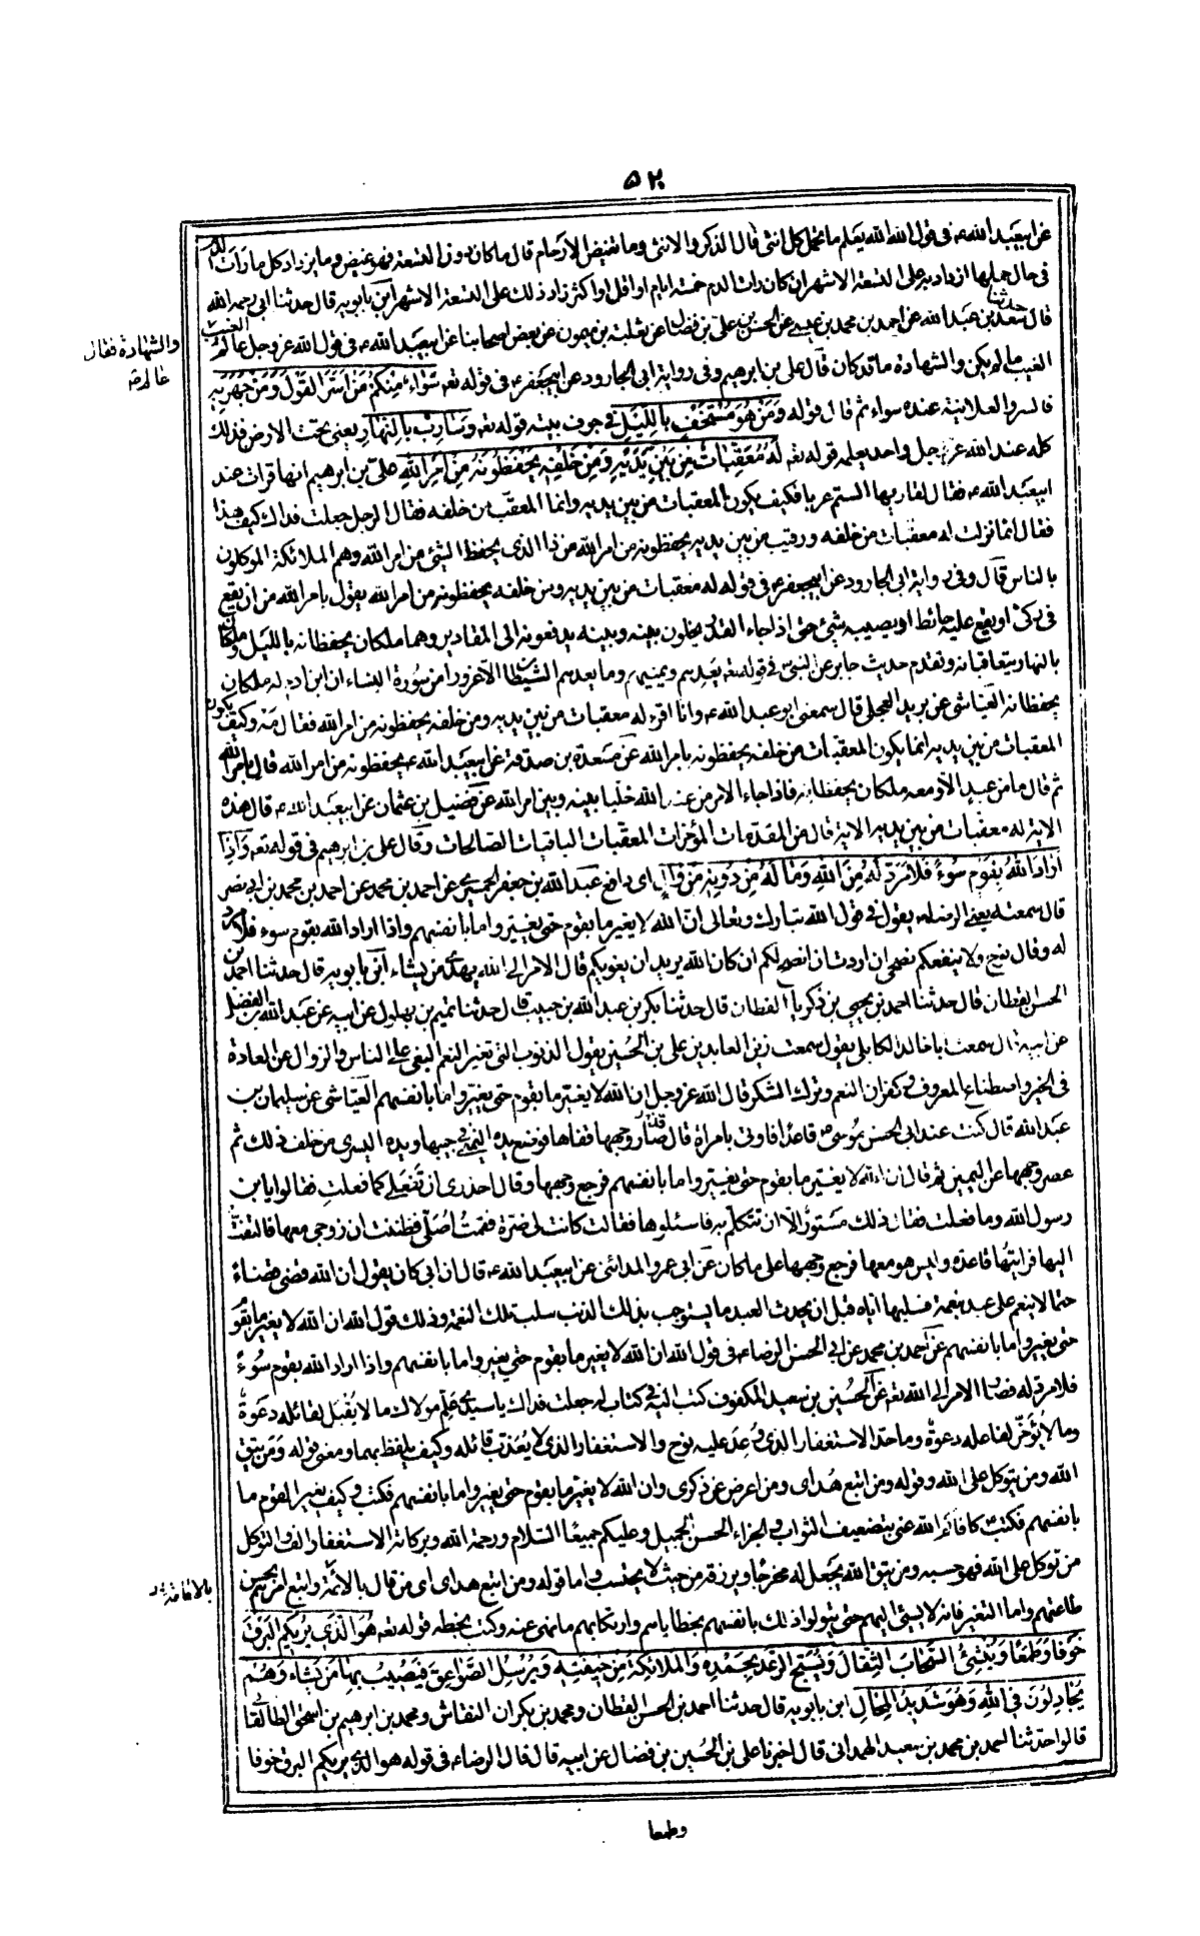 ٥٢٠
عن ابيعبد الله ع في قول الله الله يعلم ما تحمل كل انثى قال الذكر والانثى وما تغيض الارحام قال ما كان دون التسعة فهو غيض وما يزداد كل ما رأت الدم
في حال حملها ازداد به على التسعة الاشهر ان كان رات الدم خمسة ايام او اقل او اكثر زاد ذلك على التسعة الاشهر ابن بابويه قال حدثنا ابي رحمه الله
قال حدثنا سعد بن عبد الله عن احمد بن محمد بن عيسى عن الحسن بن علي بن فضال عن ثعلبة بن ميمون عن بعض اصحابنا عن ابيعبد الله ع في قول الله عز وجل عالم الغيب
والشهادة فقال
عالم
الغيب ما لم يكن والشهادة ما قد كان قال علي بن ابرهيم وفي رواية ابي الجارود عن ابيجعفر ع في قوله تعه سواء منكم من اسر القول ومن جهر به
فالسر والعلانية عنده سواء ثم قال قوله ومن هو مستخف بالليل في جوف بيته قوله تعه وسارب بالنهار يعني تحت الارض فذلك
كله عند الله عز وجل واحد يعلمه قوله تعه له معقبات من بين يديه ومن خلفه يحفظونه من امر الله علي بن ابرهيم انها قرات عند
ابيعبد الله ع فقال لقاريها الستم عربا فكيف يكون المعقبات من بين يديه وانما المعقب من خلفه فقال الرجل جعلت فداك كيف هذا
فقال انما نزلت له معقبات من خلفه ورقيب من بين يديه يحفظونه من امر الله من ذا الذي يحفظ الشئ من امر الله وهم الملائكة الموكلون
بالناس قال وفي رواية ابي الجارود عن ابيجعفر ع في قوله له معقبات من بين يديه ومن خلفه يحفظونه من امر الله يقول بامر الله من ان يقع
في ركي او يقع عليه حائط او يصيبه شئ حتى اذا جاء القدر يخلون بينه وبينه يدفعونه الى المقادير وهما ملكان يحفظانه بالليل وملكان
بالنهار يتعاقبانه وتقدم حديث جابر عن النبي ص في قوله تعه يعدهم ويمنيهم وما يعدهم الشيطان الا غرورا من سورة النساء ان ابن ادم له ملكان
يحفظانه العياشي عن بريد العجلي قال سمعني ابو عبد الله ع وانا اقرء له معقبات من بين يديه ومن خلفه يحفظونه من امر الله فقال مه وكيف يكون
المعقبات من بين يديه انما يكون المعقبات من خلفه يحفظونه بامر الله عن مسعدة بن صدقة عن ابيعبد الله ع يحفظونه من امر الله قال بامر الله
ثم قال ما من عبد الا ومعه ملكان يحفظانه فاذا جاء الامر من عند الله خليا بينه وبين امر الله عن فضيل بن عثمان عن ابيعبد الله ع قال هذه
الاية له معقبات من بين يديه الاية قال من المقدمات المؤخرات المعقبات الباقيات الصالحات وقال علي بن ابرهيم في قوله تعه واذا
اراد الله بقوم سوء فلا مرد له من الله وما له من دونه من وال اي دافع عبد الله بن جعفر الحميري عن احمد بن محمد عن احمد بن محمد بن ابي نصر
قال سمعته يعني الرضا ع يقول في قول الله تبارك وتعالى ان الله لا يغير ما بقوم حتى يغيروا ما بانفسهم واذا اراد الله بقوم سوء فلا مرد
له وقال نوح ولا ينفعكم نصحي ان اردت ان انصح لكم ان كان الله يريد ان يغويكم قال الامر الى الله يهدي من يشاء ابن بابويه قال حدثنا احمد بن
الحسن القطان قال حدثنا احمد بن يحيى بن زكريا القطان قال حدثنا بكر بن عبد الله بن حبيب قال حدثنا تميم بن بهلول عن ابيه عن عبد الله بن الفضل
عن ابيه قال سمعت ابا خالد الكابلي يقول سمعت زين العابدين علي بن الحسين يقول الذنوب التي تغير النعم البغي على الناس والزوال عن العادة
في الخير واصطناع المعروف وكفران النعم وترك الشكر قال الله عز وجل ان الله لا يغير ما بقوم حتى يغيروا ما بانفسهم العياشي عن سليمان بن
عبد الله قال كنت عند ابي الحسن موسى ع قاعدا فاوتي بامراة قد صار وجهها قفاها فوضع يده اليمنى في جبينها ويده اليسرى من خلف ذلك ثم
عصر وجهها عن اليمين ثم قال ان الله لا يغير ما بقوم حتى يغيروا ما بانفسهم فرجع وجهها وقال احذري ان تفعلي كما فعلت فقالوا يا بن
رسول الله وما فعلت فقال ذلك مستور الا ان تتكلم به فاسئلوها فقالت كانت لي ضرة فقمت اصلي فظننت ان زوجي معها فالتفت
اليها فرايتها قاعدة وليس هو معها فرجع وجهها على ما كان عن ابي عمرو المدائني عن ابيعبد الله ع قال ان ابي كان يقول ان الله قضى قضاء
حتما لا ينعم على عبد بنعمة فسلبها اياه قبل ان يحدث العبد ما يستوجب بذلك الذنب سلب تلك النعمة وذلك قول الله ان الله لا يغير ما بقوم
حتى يغيروا ما بانفسهم عن احمد بن محمد عن ابي الحسن الرضا ع في قول الله ان الله لا يغير ما بقوم حتى يغيروا ما بانفسهم واذا اراد الله بقوم سوء
فلا مرد له فصار الامر الى الله تعه عن الحسين بن سعيد المكفوف كتب اليه في كتاب له جعلت فداك يا سيدي علم مولاك ما لا يقبل لقائله دعوة
وما لا يؤخر لفاعله دعوة وما حد الاستغفار الذي وعد عليه نوح والاستغفار الذي لا يعذب قائله وكيف يلفظ بهما ومعنى قوله ومن يتق
الله ومن يتوكل على الله وقوله ومن اتبع هداي ومن اعرض عن ذكري وان الله لا يغير ما بقوم حتى يغيروا ما بانفسهم فكتب وكيف يغير القوم ما
بانفسهم فكتب ع كافاكم الله عني بتضعيف الثواب والجزاء الحسن الجميل وعليكم جميعا السلام ورحمة الله وبركاته الاستغفار الف والتوكل
من توكل على الله فهو حسبه ومن يتق الله يجعل له مخرجا ويرزقه من حيث لا يحتسب واما قوله ومن اتبع هداي اي من قال بالائمة واتبع امرهم بحسن
طاعتهم واما التغير فانه لا يسئ اليهم حتى يتولوا ذلك بانفسهم بخطاياهم وارتكابهم ما نهى عنه وكتب بخطه قوله تعه هو الذي يريكم البرق
خوفا وطمعا وينشئ السحاب الثقال ويسبح الرعد بحمده والملائكة من خيفته ويرسل الصواعق فيصيب بها من يشاء وهم
يجادلون في الله وهو شديد المحال ابن بابويه قال حدثنا احمد بن الحسن القطان ومحمد بن بكران النقاش ومحمد بن ابرهيم بن اسحق الطالقاني
قالوا حدثنا احمد بن محمد بن سعيد الهمداني قال اخبرنا علي بن الحسين بن فضال عن ابيه قال قال الرضا ع في قوله هو الذي يريكم البرق خوفا
وطمعا